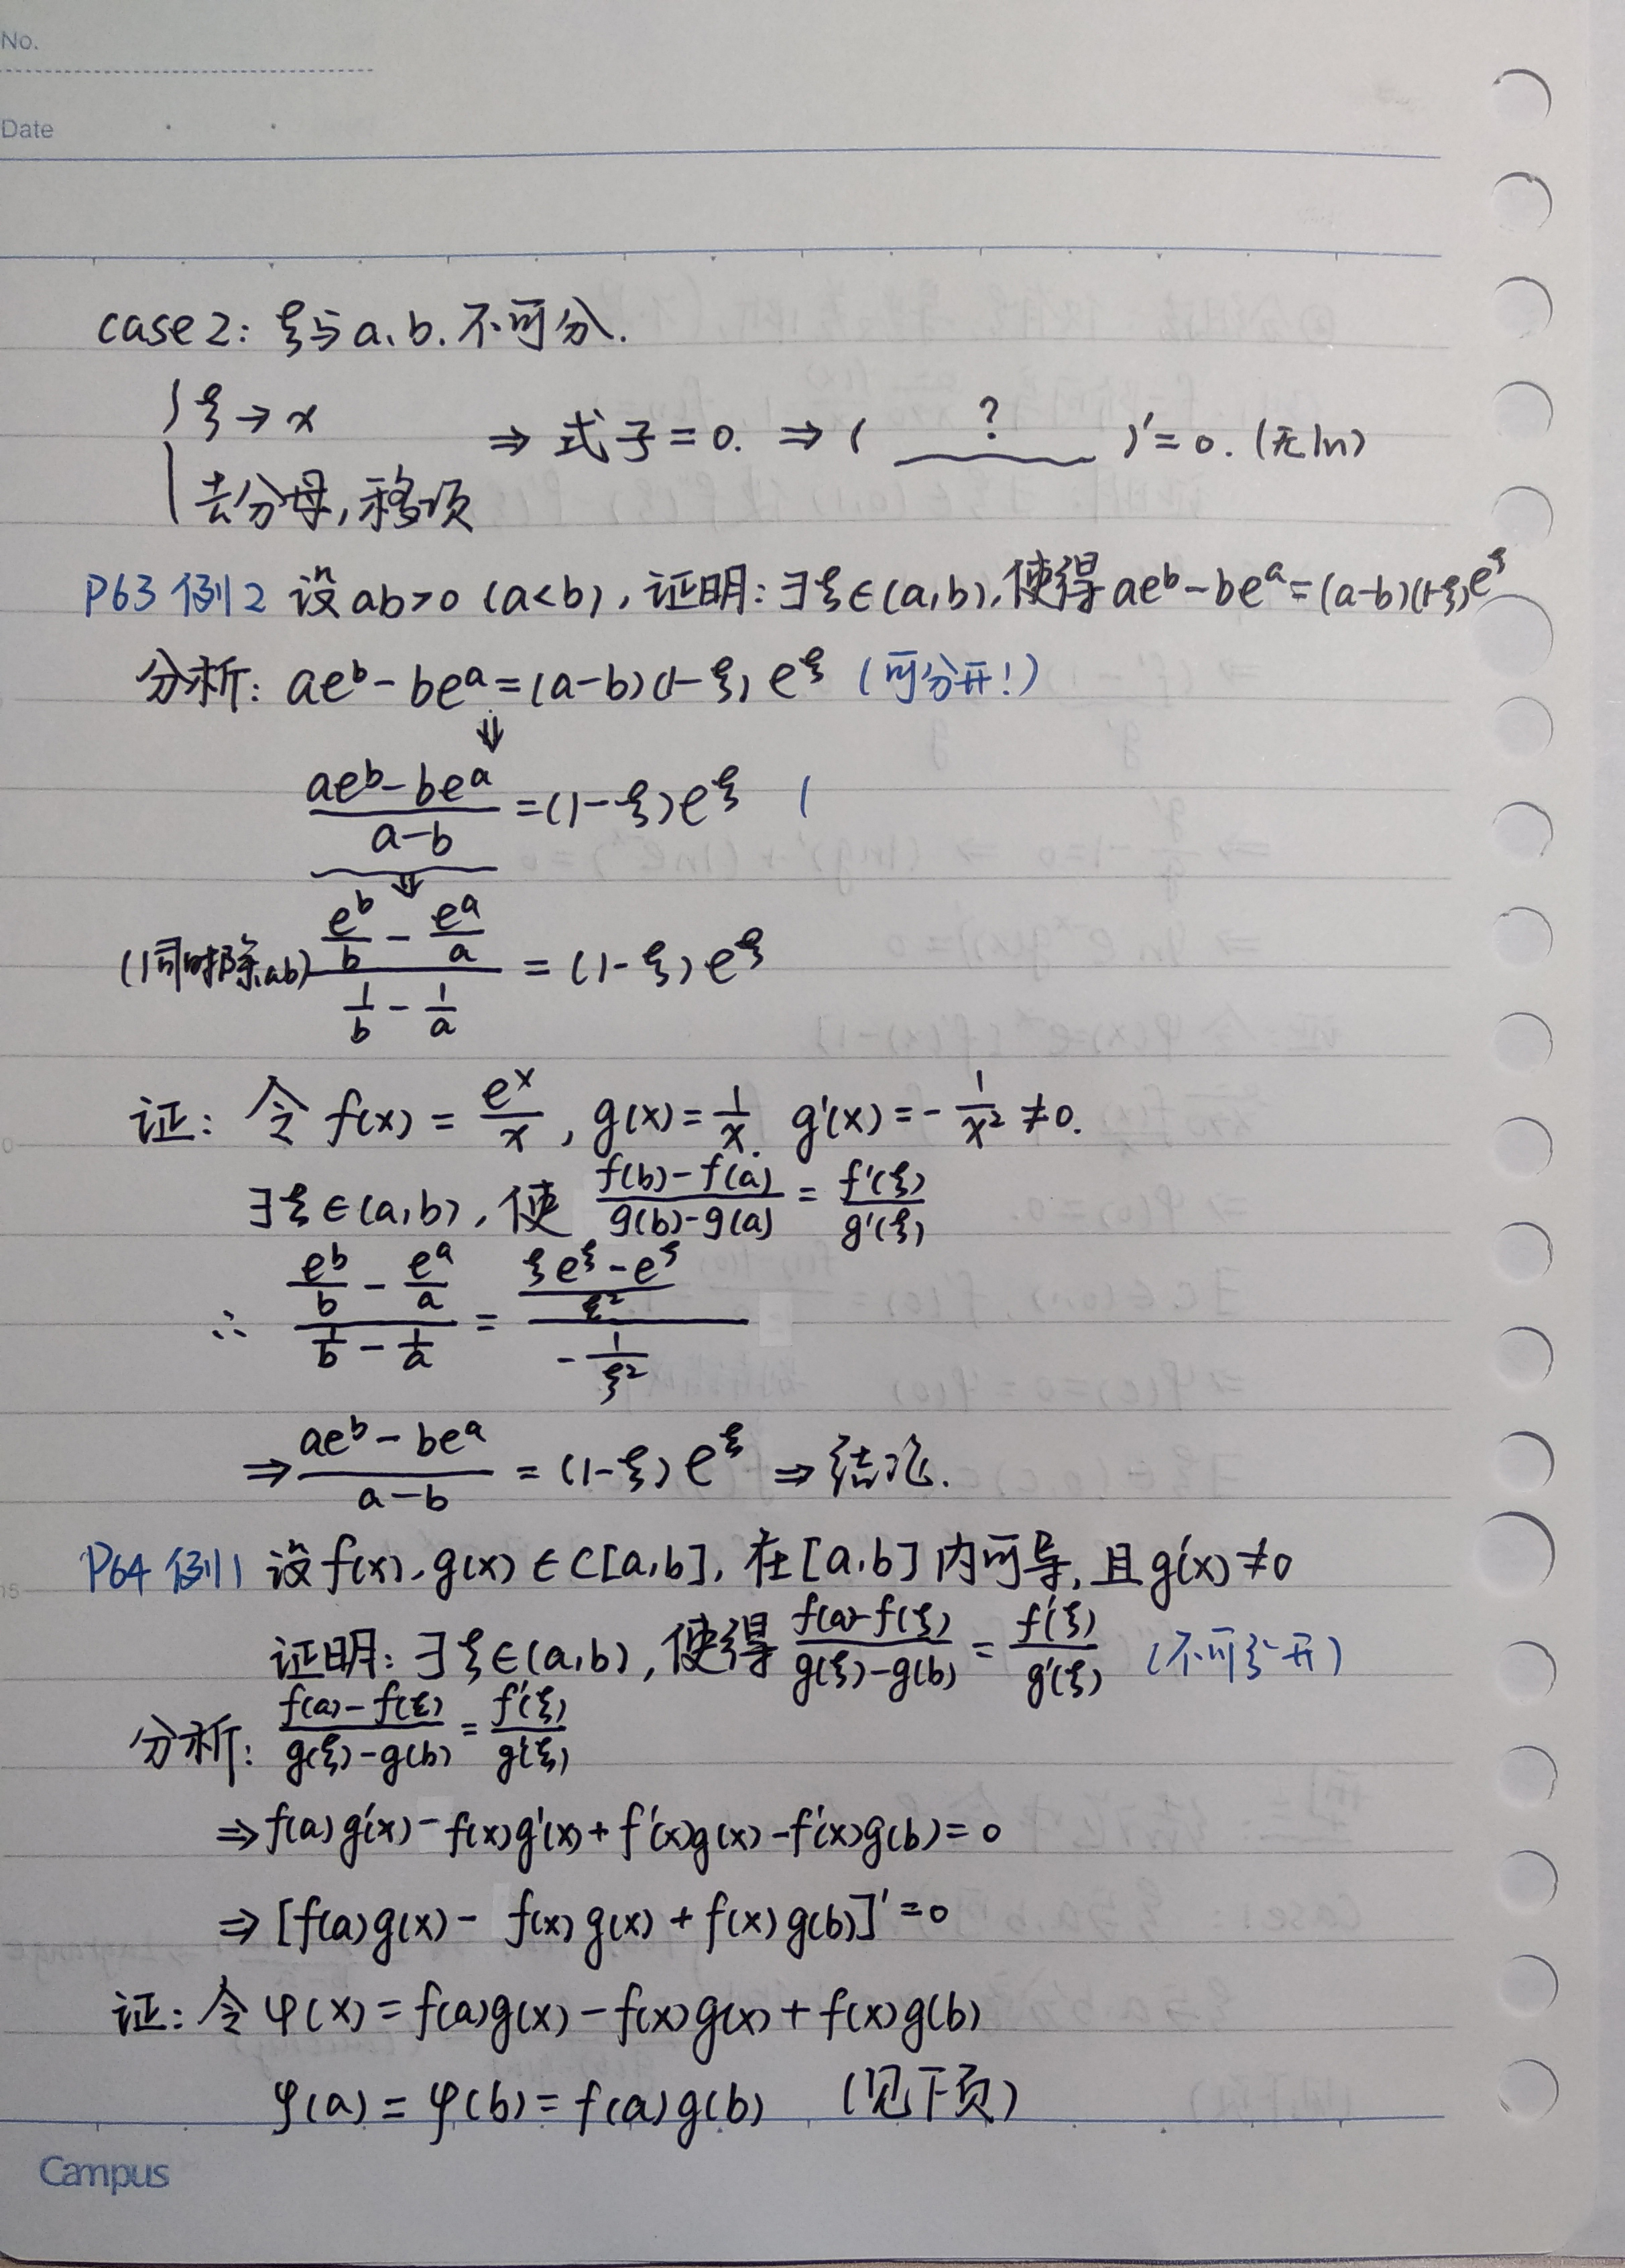 No.
Date
case2: ξ与a、b.不可分.
{ξ→x
去分母,移项 ⇒ 式子=0. ⇒ ( ? )'=0. (无ln)
P63 例2 设ab>0 (a<b), 证明: ∃ξ∈(a,b), 使得ae^b-be^a=(a-b)(1-ξ)e^ξ
分析: ae^b-be^a=(a-b)(1-ξ)e^ξ (可分开!)
⇓
(ae^b-be^a)/(a-b)=(1-ξ)e^ξ (
⇓
(同时除ab) (e^b/b - e^a/a)/(1/b - 1/a) = (1-ξ)e^ξ
证: 令 f(x)=e^x/x, g(x)=1/x. g'(x)=-1/x² ≠0.
∃ξ∈(a,b), 使 (f(b)-f(a))/(g(b)-g(a)) = f'(ξ)/g'(ξ)
∴ (e^b/b - e^a/a)/(1/b - 1/a) = ((ξe^ξ-e^ξ)/ξ²)/(-1/ξ²)
⇒ (ae^b-be^a)/(a-b) = (1-ξ)e^ξ ⇒ 结论.
P64 例1 设f(x)、g(x)∈C[a,b], 在[a,b]内可导, 且g'(x)≠0
证明: ∃ξ∈(a,b), 使得 (f(a)-f(ξ))/(g(ξ)-g(b)) = f'(ξ)/g'(ξ) (不可分开)
分析: (f(a)-f(ξ))/(g(ξ)-g(b)) = f'(ξ)/g'(ξ)
⇒ f(a)g'(x)-f(x)g'(x)+f'(x)g(x)-f'(x)g(b)=0
⇒ [f(a)g(x)- f(x)g(x)+f(x)g(b)]'=0
证: 令φ(x)=f(a)g(x)-f(x)g(x)+f(x)g(b)
φ(a)=φ(b)=f(a)g(b) (见下页)
Campus